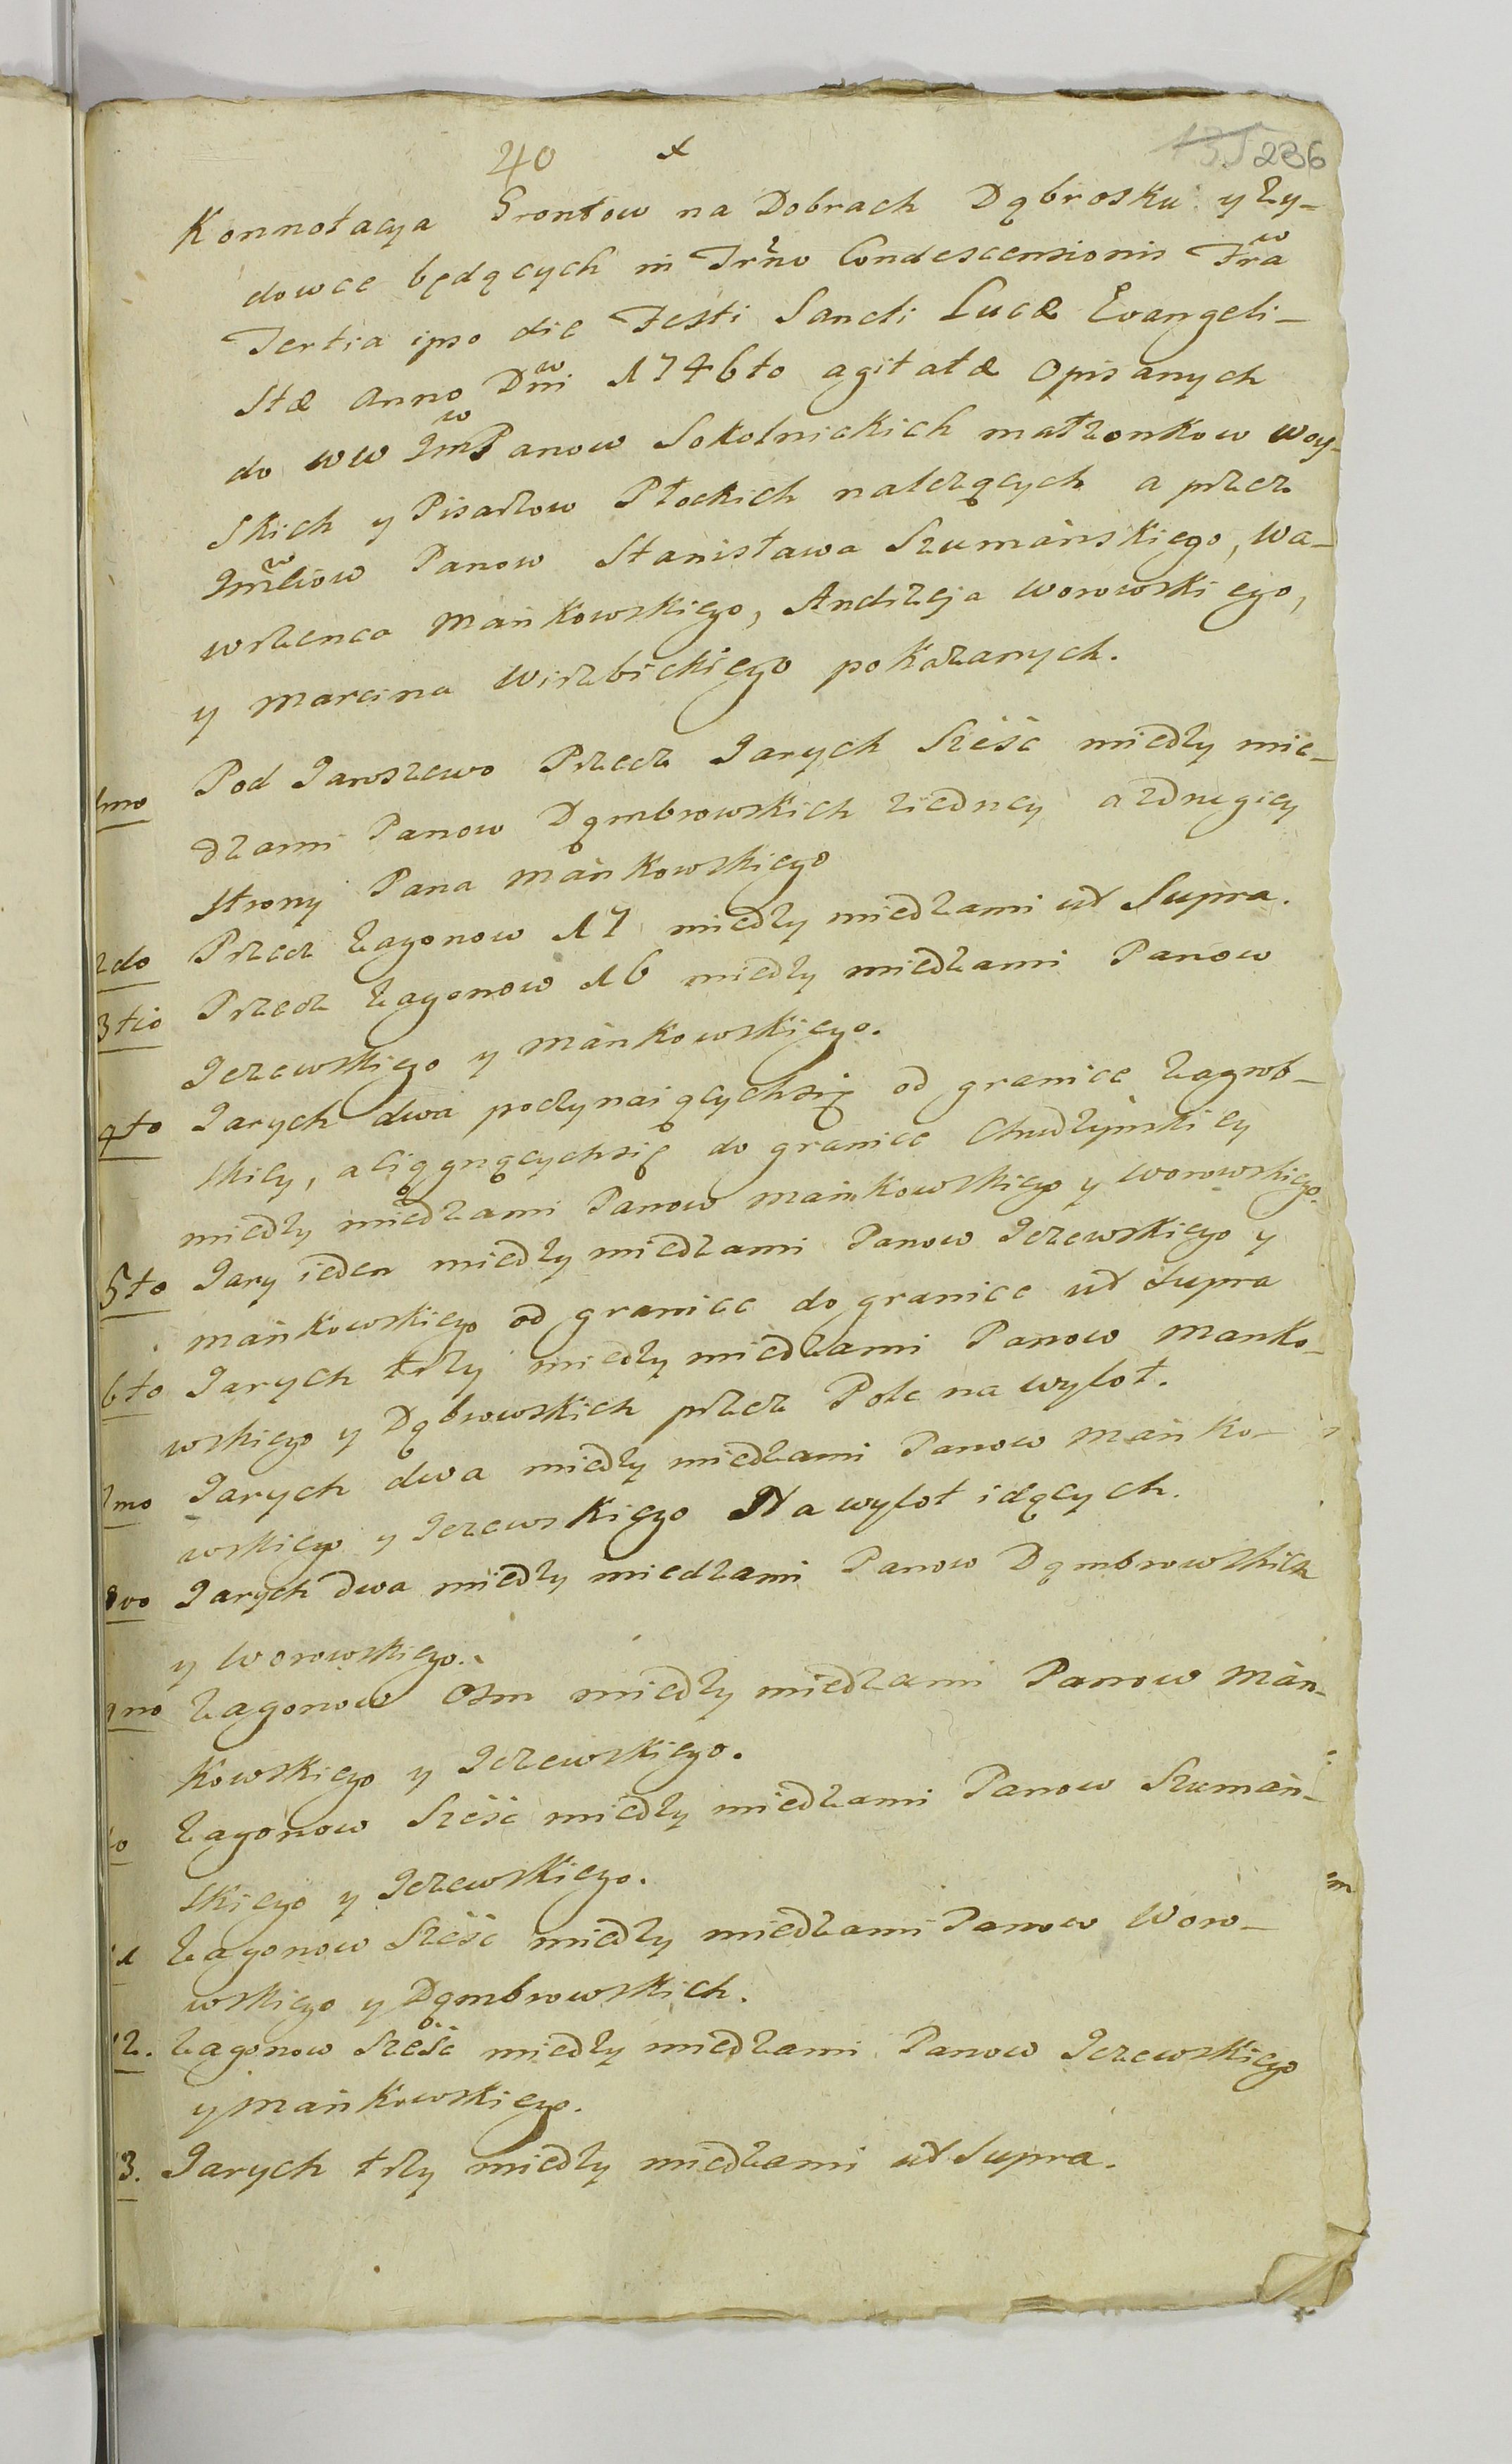 40 x 135 236
Konnotacya Grontow na Dobrach Dąbrosku y Ży-
dowce będących in Trno Condescensionis Fra
Tertia ipso die Festi Sancti Lucæ Evangeli-
stæ anno Dni 1746to agitatæ Opisanych
do WW ImPanow Sokolnickich małzonkow Woy-
skich y Pisarzow Płockich nalezących a przez
Panow Stanisława Szumańskiego, Wa-
wrzenca Mańkowskiego, Andrzeja Worowskiego,
y Marcina Wirzbickiego pokazanych.
1mo Pod Jaroszewo Przecz Jarych Sześć miedzy mie-
dzami Panow Dąmbrowskich ziedney a zdrugiey
strony Pana Mańkowskiego
2do Przecz Zagonow 17 miedzy miedzami ut Supra.
3tio Przecz Zagonow 16 miedzy miedzami Panow
Jezewskiego y Mańkowskiego.
4to Jarych dwa poczynaiącychsię od granice Zagrob-
skiey, a ciągnącychsię do granice Chudzyńskiey
miedzy miedzami Panow Mańkowskiego y Worowskiego.
5to Jary ieden miedzy miedzami Panow Jezewskiego y
Mańkowskiego od granice do granice ut Supra
6to Jarych trzy miedzy miedzami Panow Manko-
wskiego y Dąbrowskich przez Pole na wylot.
7mo Jarych dwa miedzy miedzami Panow Mańko-
wskiego y Jezewskiego Na wylot idących.
8vo Jarych dwa miedzy miedzami Panow Dąmbrowskich
y Worowskiego.
9no Zagonow Osm miedzy miedzami Panow Mań-
kowskiego y Jezewskiego.
to Zagonow Sześć miedzy miedzami Panow Szumań-
skiego y Jezewskiego.
11 Zagonow Sześć miedzy miedzami Panow Woro-
wskiego y Dąmbrowskich.
12. Zagonow Sześć miedzy miedzami Panow Jezewskiego
y Mańkowskiego.
13. Jarych trzy miedzy miedzami ut Supra.